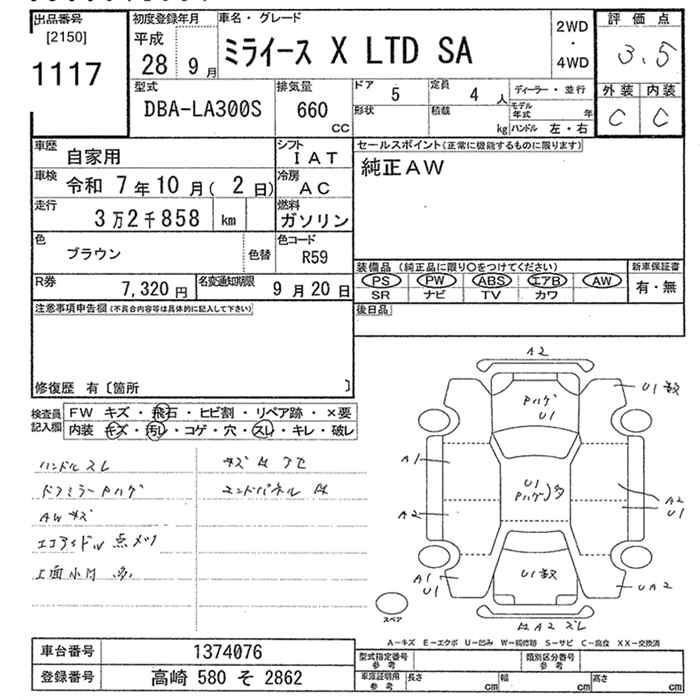 出品番号 初度登録年月 車名・グレード 2WD・4WD 評価点
[2150] 平成 28 9月 ミライース X LTD SA 3.5
1117 外装 内装
型式 排気量 ドア 5 定員 4人 ディーラー・並行 C C
DBA-LA300S 660 CC 形状 積載 kg モデル年式 年 ハンドル 左・右
車歴 自家用 シフト IAT セールスポイント(正常に機能するものに限ります)
車検 令和 7年10月(2日) 冷房 AC 純正AW
走行 3万2千858 km 燃料 ガソリン
色 ブラウン 色替 色コード R59
装備品(純正品に限り○をつけてください) 新車保証書
R券 7,320円 名変通知期限 9月20日 PS PW ABS エアB AW 有・無
SR ナビ TV カワ
注意事項申告欄(不具合内容等は具体的に記入して下さい) 後日品
修復歴 有〔箇所 〕
検査員記入欄 FW キズ・飛石・ヒビ割・リペア跡・×要
内装 キズ・汚レ・コゲ・穴・スレ・キレ・破レ
ハンドル スレ
ドアミラーPハゲ エンドパネル
AW キズ
エコアイドル 点メツ
上面小凹 多
A2
PハゲU1
U1数
A1
U1 Pハゲ 多
A2
A2 U1
A1 U1
U1数
UA2
スペア
A2 スレ
A-キズ E-エクボ U-凹み W-補修跡 S-サビ C-腐食 XX-交換済
車台番号 1374076 型式指定番号 参考 類別区分番号 参考
登録番号 高崎 580 そ 2862 車庫証明用 参考 長さ cm 幅 cm 高さ cm